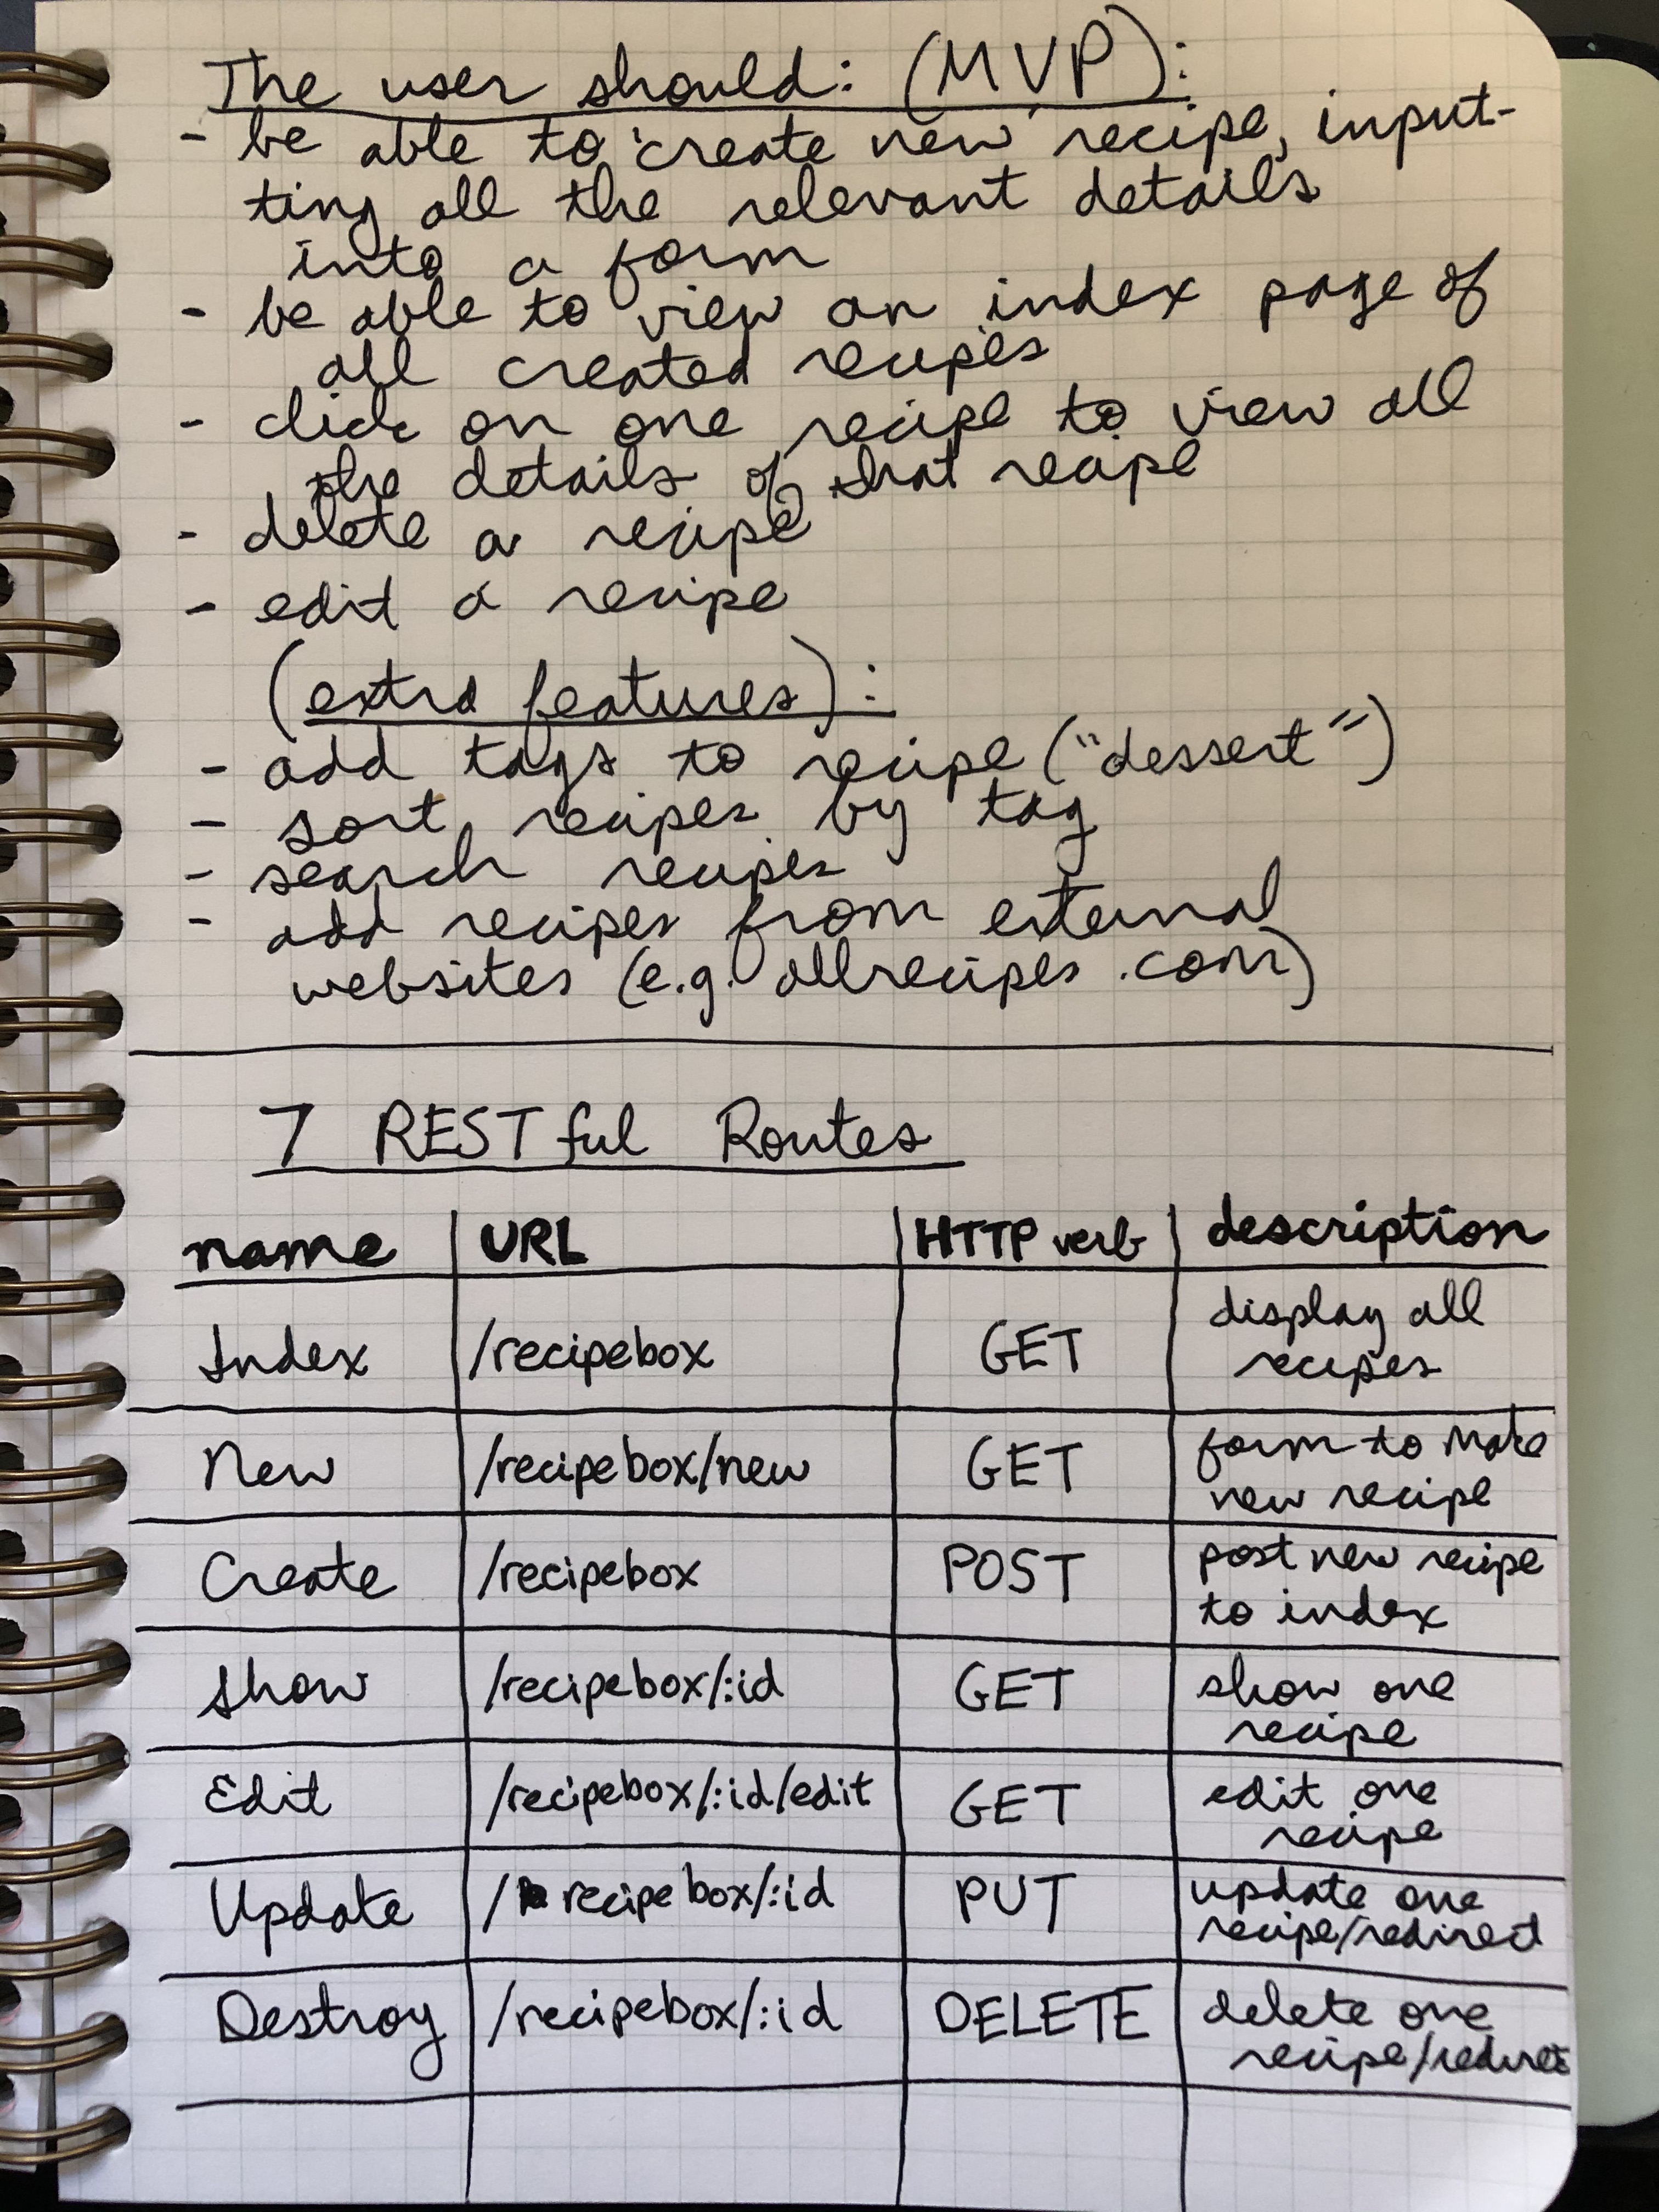 The user should: (MVP):
- be able to create new recipe, input-
ting all the relevant details
into a form
- be able to view an index page of
all created recipes
- click on one recipe to view all
the details of that recipe
- delete a recipe
- edit a recipe
(extra features):
- add tags to recipe ("dessert")
- sort recipes by tag
- search recipes
- add recipes from external
websites (e.g. allrecipes.com)
7 RESTful Routes
name | URL | HTTP verb | description
Index | /recipebox | GET | display all
recipes
New | /recipebox/new | GET | form to make
new recipe
Create | /recipebox | POST | post new recipe
to index
Show | /recipebox/:id | GET | show one
recipe
Edit | /recipebox/:id/edit | GET | edit one
recipe
Update | /recipebox/:id | PUT | update one
recipe/redirect
Destroy | /recipebox/:id | DELETE | delete one
recipe/redirect